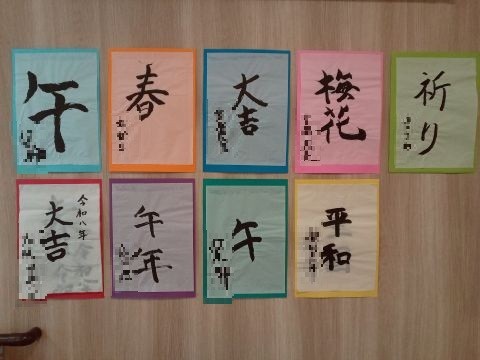 午
春
大吉
梅花
祈り
令和八年
大吉
午年
午
平和